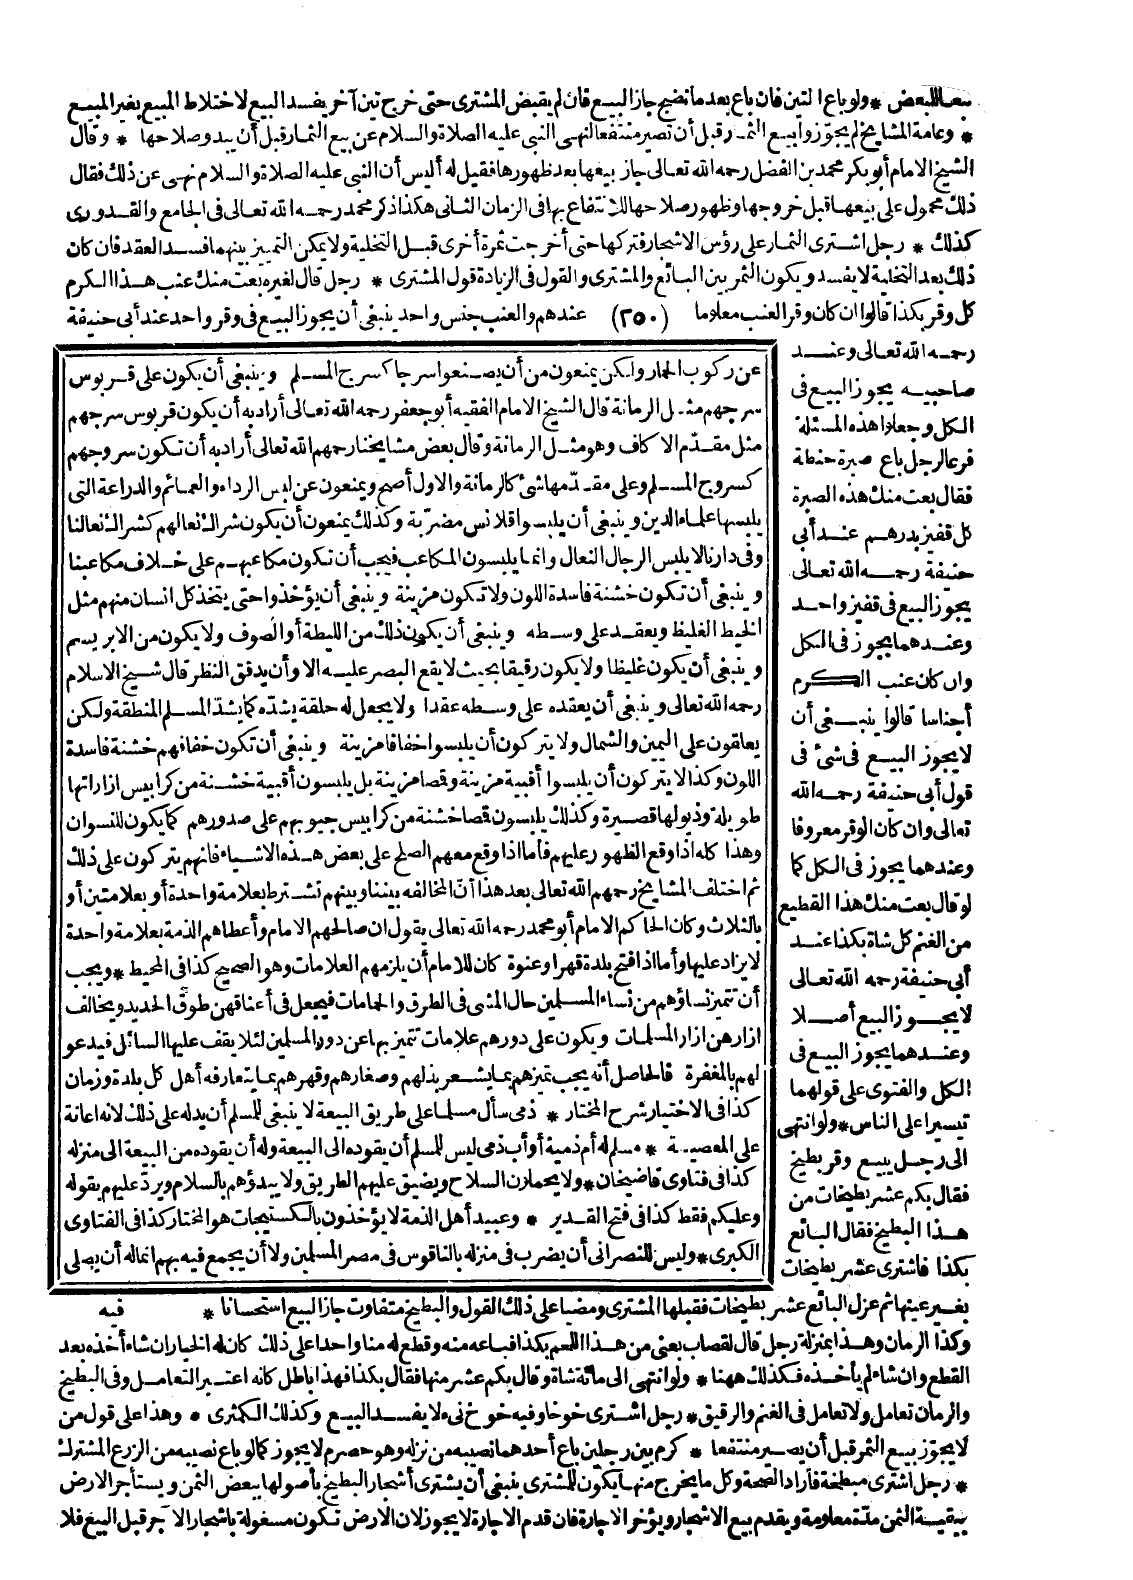 بعدالبعض * ولو باع التين فان باع بعد ما نضج جاز البيع فان لم يقبض المشترى حتى خرج تين آخر يفسد البيع لاختلاط المبيع بغير المبيع
* وعامة المشايخ لم يجوّزوا بيع الثمار قبل أن تصير منتفعا لنهى النبى عليه الصلاة والسلام عن بيع الثمار قبل أن يبدو صلاحها * وقال
الشيخ الامام أبو بكر محمد بن الفضل رحمه الله تعالى جاز بيعها بعد ظهورها فقيل له أليس أن النبى عليه الصلاة والسلام نهى عن ذلك فقال
ذلك محمول على بيعها قبل خروجها وظهور صلاحها للانتفاع بها فى الزمان الثانى هكذا ذكر محمد رحمه الله تعالى فى الجامع والقدورى
كذلك * رجل اشترى الثمار على رؤس الاشجار فتركها حتى أخرجت ثمرة أخرى قبل التخلية ولا يمكن التمييز بينهما فسد العقد فان كان
ذلك بعد التخلية لا يفسد ويكون الثمر بين البائع والمشترى والقول فى الزيادة قول المشترى * رجل قال لغيره بعت منك عنب هذا الكرم
كل وقر بكذا قالوا ان كان وقر العنب معلوما (٢٥٠) عندهم والعنب جنس واحد ينبغى أن يجوز البيع فى وقر واحد عند أبى حنيفة
رحمه الله تعالى وعند
صاحبيه يجوز البيع فى
الكل وجعلوا هذه المسئلة
فرعا لرجل باع صبرة حنطة
فقال بعت منك هذه الصبرة
كل قفيز بدرهم عند أبى
حنيفة رحمه الله تعالى
يجوز البيع فى قفيز واحد
وعندهما يجوز فى الكل
وان كان عنب الكرم
أجناسا قالوا ينبغى أن
لا يجوز البيع فى شئ فى
قول أبى حنيفة رحمه الله
تعالى وان كان الوقر معروفا
وعندهما يجوز فى الكل كما
لو قال بعت منك هذا القطيع
من الغنم كل شاة بكذا عند
أبى حنيفة رحمه الله تعالى
لا يجوز البيع أصلا
وعندهما يجوز البيع فى
الكل والفتوى على قولهما
تيسيرا على الناس * ولو انتهى
الى رجل يبيع وقر بطيخ
فقال بكم عشر بطيخات من
هذا البطيخ فقال البائع
بكذا فاشترى عشر بطيخات
عن ركوب الحمار ولكن يمنعون من أن يصنعوا سرجا كسرج المسلم وينبغى أن يكون على قربوس
سرجهم مثل الرمانة قال الشيخ الامام الفقيه أبو جعفر رحمه الله تعالى أراد به أن يكون قربوس سرجهم
مثل مقدّم الاكاف وهو مثل الرمانة وقال بعض مشايخنا رحمهم الله تعالى أراد به أن تكون سروجهم
كسروج المسلم وعلى مقدّمها شئ كالرمانة والاول أصح ويمنعون عن لبس الرداء والعمائم والدراعة التى
يلبسها علماء الدين وينبغى أن يلبسوا قلانس مضرّبة وكذلك يمنعون أن يكون شراك نعالهم كشراك نعالنا
وفى دارنا لا يلبس الرجال النعال وانما يلبسون المكاعب فيجب أن تكون مكاعبهم على خلاف مكاعبنا
وينبغى أن تكون خشنة فاسدة اللون ولا تكون مزينة وينبغى أن يؤخذوا حتى يتخذ كل انسان منهم مثل
الخيط الغليظ ويعقد على وسطه وينبغى أن يكون ذلك من الليطة أو الصوف ولا يكون من الابريسم
وينبغى أن يكون غليظا ولا يكون رقيقا بحيث لا يقع البصر عليه الا وأن يدقق النظر قال شيخ الاسلام
رحمه الله تعالى وينبغى أن يعقده على وسطه عقدا ولا يجعل له حلقة يشدّه كما يشدّ المسلم المنطقة ولكن
يعلقون على اليمين والشمال ولا يتركون أن يلبسوا خفافا مزينة وينبغى أن تكون خفافهم خشنة فاسدة
اللون وكذا لا يتركون أن يلبسوا أقبية مزينة وقمصا مزينة بل يلبسون أقبية خشنة من كرابيس ازاراتها
طويلة وذيولها قصيرة وكذلك يلبسون قمصا خشنة من كرابيس جيوبهم على صدورهم كما يكون للنسوان
وهذا كله اذا وقع الظهور عليهم فأما اذا وقع معهم الصلح على بعض هذه الاشياء فانهم يتركون على ذلك
ثم اختلف المشايخ رحمهم الله تعالى بعد هذا أن المخالفة بيننا وبينهم تشترط بعلامة واحدة أو بعلامتين أو
بالثلاث وكان الحاكم الامام أبو محمد رحمه الله تعالى يقول ان صالحهم الامام وأعطاهم الذمة بعلامة واحدة
لا يزاد عليها وأما اذا فتح بلدة قهرا وعنوة كان للامام أن يلزمهم العلامات وهو الصحيح كذا فى المحيط * ويجب
أن تتميز نساؤهم من نساء المسلمين حال المشى فى الطرق والحمامات فيجعل فى أعناقهن طوق الحديد ويخالف
ازارهن ازار المسلمات ويكون على دورهم علامات تتميز بها عن دور المسلمين لئلا يقف عليها السائل فيدعو
لهم بالمغفرة فالحاصل أنه يجب تميزهم بما يشعر بذلهم وصغارهم وقهرهم بما يتعارفه أهل كل بلدة وزمان
كذا فى الاختيار شرح المختار * ذمى سأل مسلما على طريق البيعة لا ينبغى للمسلم أن يدله على ذلك لانه اعانة
على المعصية * مسلم له أم ذمية أو أب ذمى ليس للمسلم أن يقوده الى البيعة وله أن يقوده من البيعة الى منزله
كذا فى فتاوى قاضيخان * ولا يحملون السلاح ويضيق عليهم الطريق ولا يبدؤهم بالسلام ويردّ عليهم بقوله
وعليكم فقط كذا فى فتح القدير * وعبيد أهل الذمة لا يؤخذون بالكستيجات هو المختار كذا فى الفتاوى
الكبرى * وليس للنصرانى أن يضرب فى منزله بالناقوس فى مصر المسلمين ولا أن يجمع فيه بهم انما له أن يصلى
بغير عينها ثم عزل البائع عشر بطيخات فقبلها المشترى ومضيا على ذلك القول والبطيخ متفاوت جاز البيع استحسانا * فيه
وكذا الرمان وهذا بمنزلة رجل قال لقصاب بعنى من هذا اللحم بكذا فباعه منه وقطع له منا واحدا على ذلك كان له الخيار ان شاء أخذه بعد
القطع وان شاء لم يأخذه فكذلك ههنا * ولو انتهى الى مائة شاة وقال بكم عشر منها فقال بكذا فهذا باطل كانه اعتبر التعامل وفى البطيخ
والرمان تعامل ولا تعامل فى الغنم والرقيق * رجل اشترى خوخا وفيه خوخ نىء لا يفسد البيع وكذلك الكمثرى * وهذا على قول من
لا يجوّز بيع الثمر قبل أن يصير منتفعا * كرم بين رجلين باع أحدهما نصيبه من نزله وهو حصرم لا يجوز كما لو باع نصيبه من الزرع المشترك
* رجل اشترى مبطخة فأراد الصحة وكل ما يخرج منها يكون للمشترى ينبغى أن يشترى أشجار البطيخ بأصولها ببعض الثمن ويستأجر الارض
ببقية الثمن مدّة معلومة ويقدم بيع الاشجار ويؤخر الاجارة فان قدم الاجارة لا يجوز لان الارض تكون مشغولة باشجار الآجر قبل البيع فلا